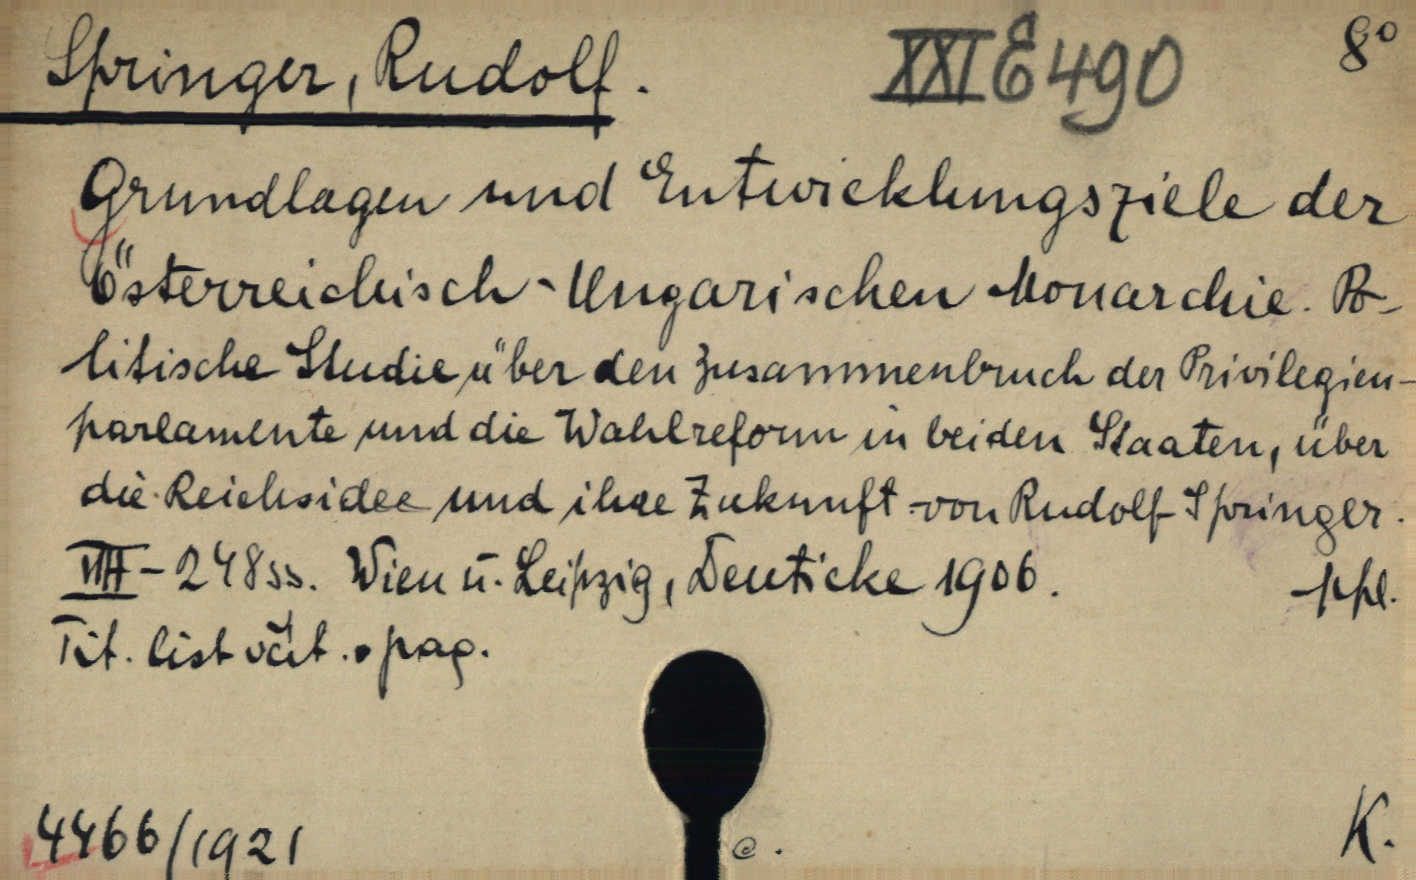 Springer, Rudolf. XXI E 490 8°
Grundlagen und Entwicklungsziele der
Österreichisch-Ungarischen Monarchie. Po-
litische Studie über den Zusammenbruch der Privilegien-
parlamente und die Wahlreform in beiden Staaten, über
die Reichsidee und ihre Zukunft von Rudolf Springer.
VIII-248 ss. Wien u. Leipzig, Deuticke 1906. ppl.
Tit. list pag.
4466/1921 K.